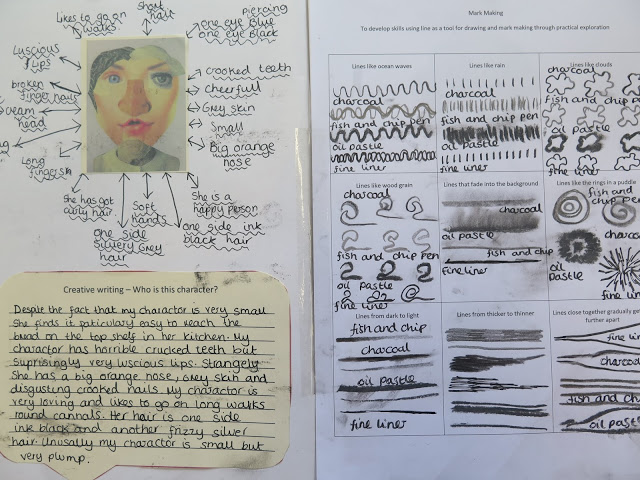 Likes to go on
walks
short
hair
piercing
one eye blue
one eye black
Luscious
lips
crooked teeth
broken
finger nails
cheerfull
cream
head
Grey skin
Small
Long
fingers
Big orange
nose
She has got
curly hair
Soft
Hands
She is a
happy person
one side
silvery Grey
hair
one side ink
black hair
Creative writing – Who is this character?
Despite the fact that my charactor is very small
She finds it paticulary easy to reach the
bread on the top shelf in her kitchen. My
charactor has horrible crucked teeth but
suprisingly very luscious lips. Strangely
She has a big orange nose, Grey skin and
disgusting crooked nails. My charactor is
very loving and likes to go on long walks
round cannals. Her hair is one side
ink black and another frizzy silver
hair. Unusally my charactor is small but
very plump.
Mark Making
To develop skills using line as a tool for drawing and mark making through practical exploration
Lines like ocean waves
charcoal
fish and chip pen
oil pastle
fine liner
Lines like rain
charcoal
fish and chip pen
oil pastle
fine liner
Lines like clouds
charcoal
fish and chip pen
oil pastle
fine liner
Lines like wood grain
charcoal
fish and chip pen
oil pastle
fine liner
Lines that fade into the background
charcoal
oil pastle
fish and chip
fine liner
Lines like the rings in a puddle
fish and
chip pen
charcoal
oil
pastle
fine liner
Lines from dark to light
fish and chip
charcoal
oil pastle
fine liner
Lines from thicker to thinner
Lines close together gradually get
further apart
fine line
charcoal
fish and chip
oil pastle